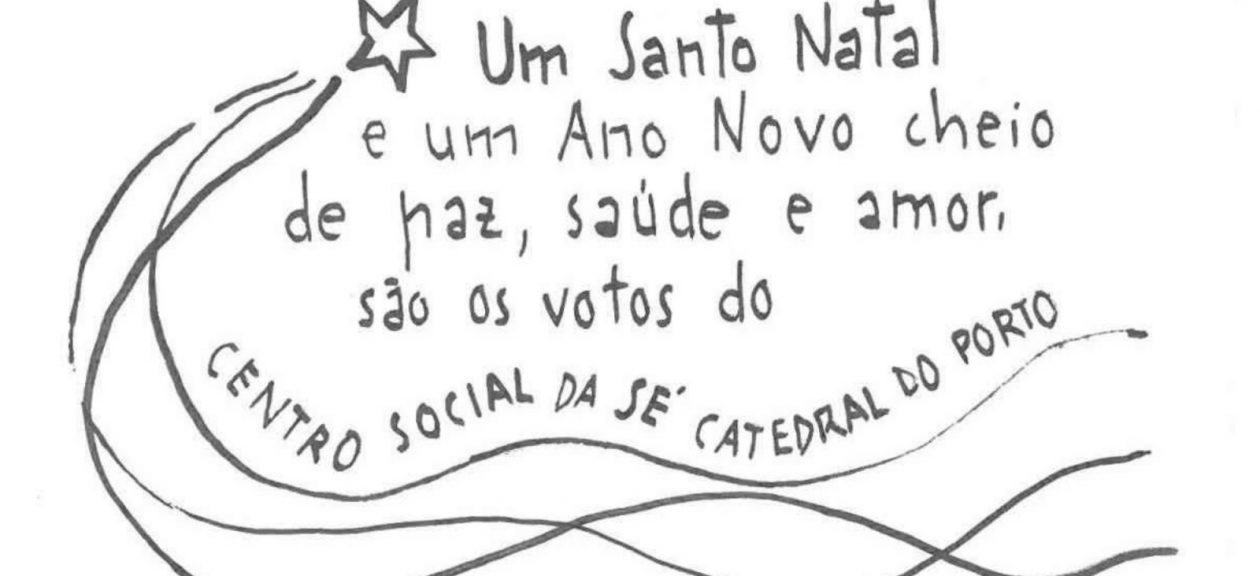 Um Santo Natal
e um Ano Novo cheio
de paz, saúde e amor,
são os votos do
CENTRO SOCIAL DA SÉ CATEDRAL DO PORTO